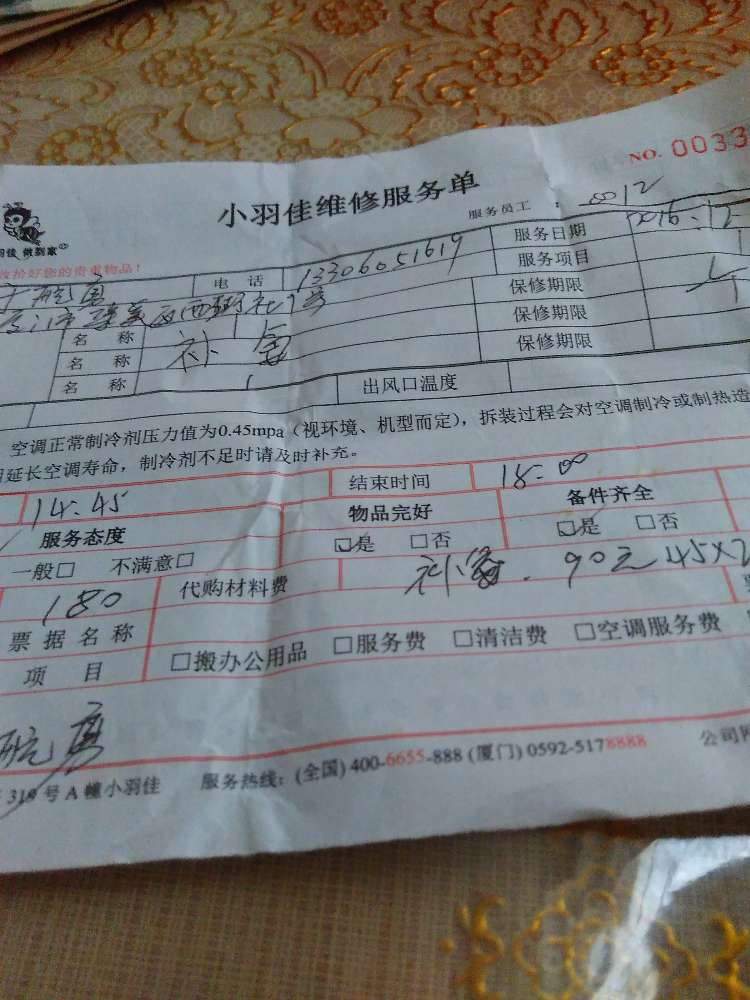 NO. 0033
小羽佳维修服务单
服务员工 : 0012
做到家
收拾好您的贵重物品!
电 话 13306051619 服务日期 2016.12
服务项目
名 称 保修期限
名 称 补 氟 保修期限
名 称 保修期限
出风口温度
空调正常制冷剂压力值为0.45mpa（视环境、机型而定），拆装过程会对空调制冷或制热造
延长空调寿命，制冷剂不足时请及时补充。
14.45 结束时间 18.00
服务态度 物品完好 备件齐全
一般□ 不满意□ ☑是 □否 ☑是 □否
180 代购材料费 90元 45×2
票 据 名 称
项 目 □搬办公用品 □服务费 □清洁费 □空调服务费
319 号 A 幢小羽佳 服务热线：(全国) 400-6655-888 (厦门) 0592-5178888 公司网